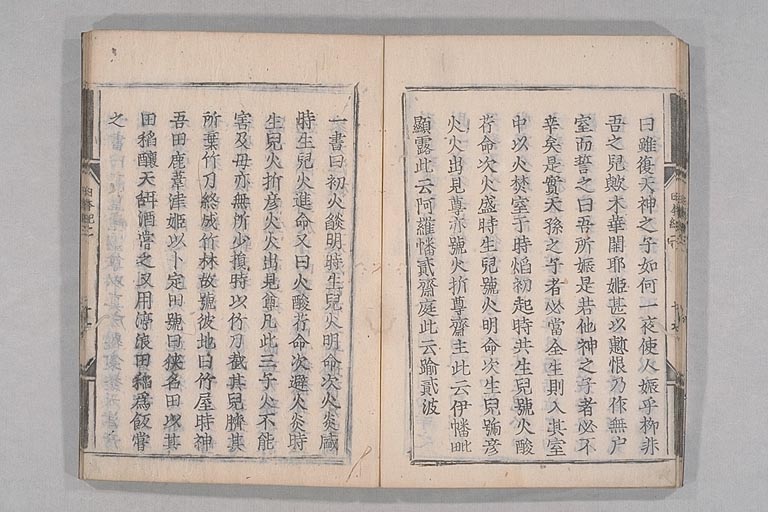 曰雖復天神之子如何一夜使人娠乎抑非
吾之兒歟木華開耶姬甚以慙恨乃作無戶
室而誓之曰吾所娠是若他神之子者必不
幸矣是實天孫之子者必當全生則入其室
中以火焚室于時焰初起時共生兒號火酸
芹命次火盛時生兒號火明命次生兒號彥
火火出見尊亦號火折尊齋主此云伊幡毗
顯露此云阿羅幡貳齋庭此云踰貳波
一書曰初火燄明時生兒火明命次火炎盛
時生兒火進命又曰火酸芹命次避火炎時
生兒火折彥火火出見尊凡此三子火不能
害及母亦無所少損時以竹刀截其兒臍其
所棄竹刀終成竹林故號彼地曰竹屋時神
吾田鹿葦津姬以卜定田號曰狹名田以其
田稻釀天甜酒嘗之又用渟浪田稻爲飯嘗
之